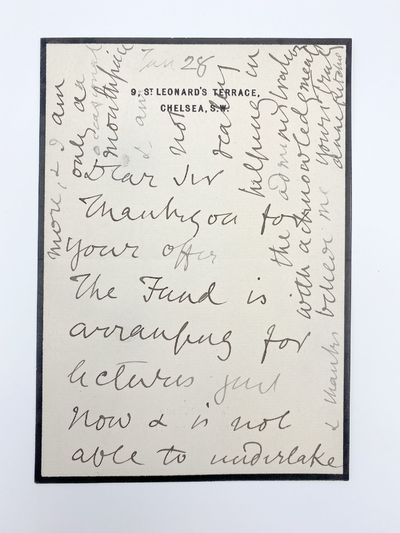 Jan 28
9, ST LEONARD'S TERRACE,
CHELSEA, S.W.
Dear Sir
Thank you for
your offer
The Fund is
arranging for
lectures just
now & is not
able to undertake
more, & I am
only an
occasional
mouthpiece
& am
not
really
helping in
the administration
with acknowledgment
& thanks believe me yours truly
Anne Ritchie